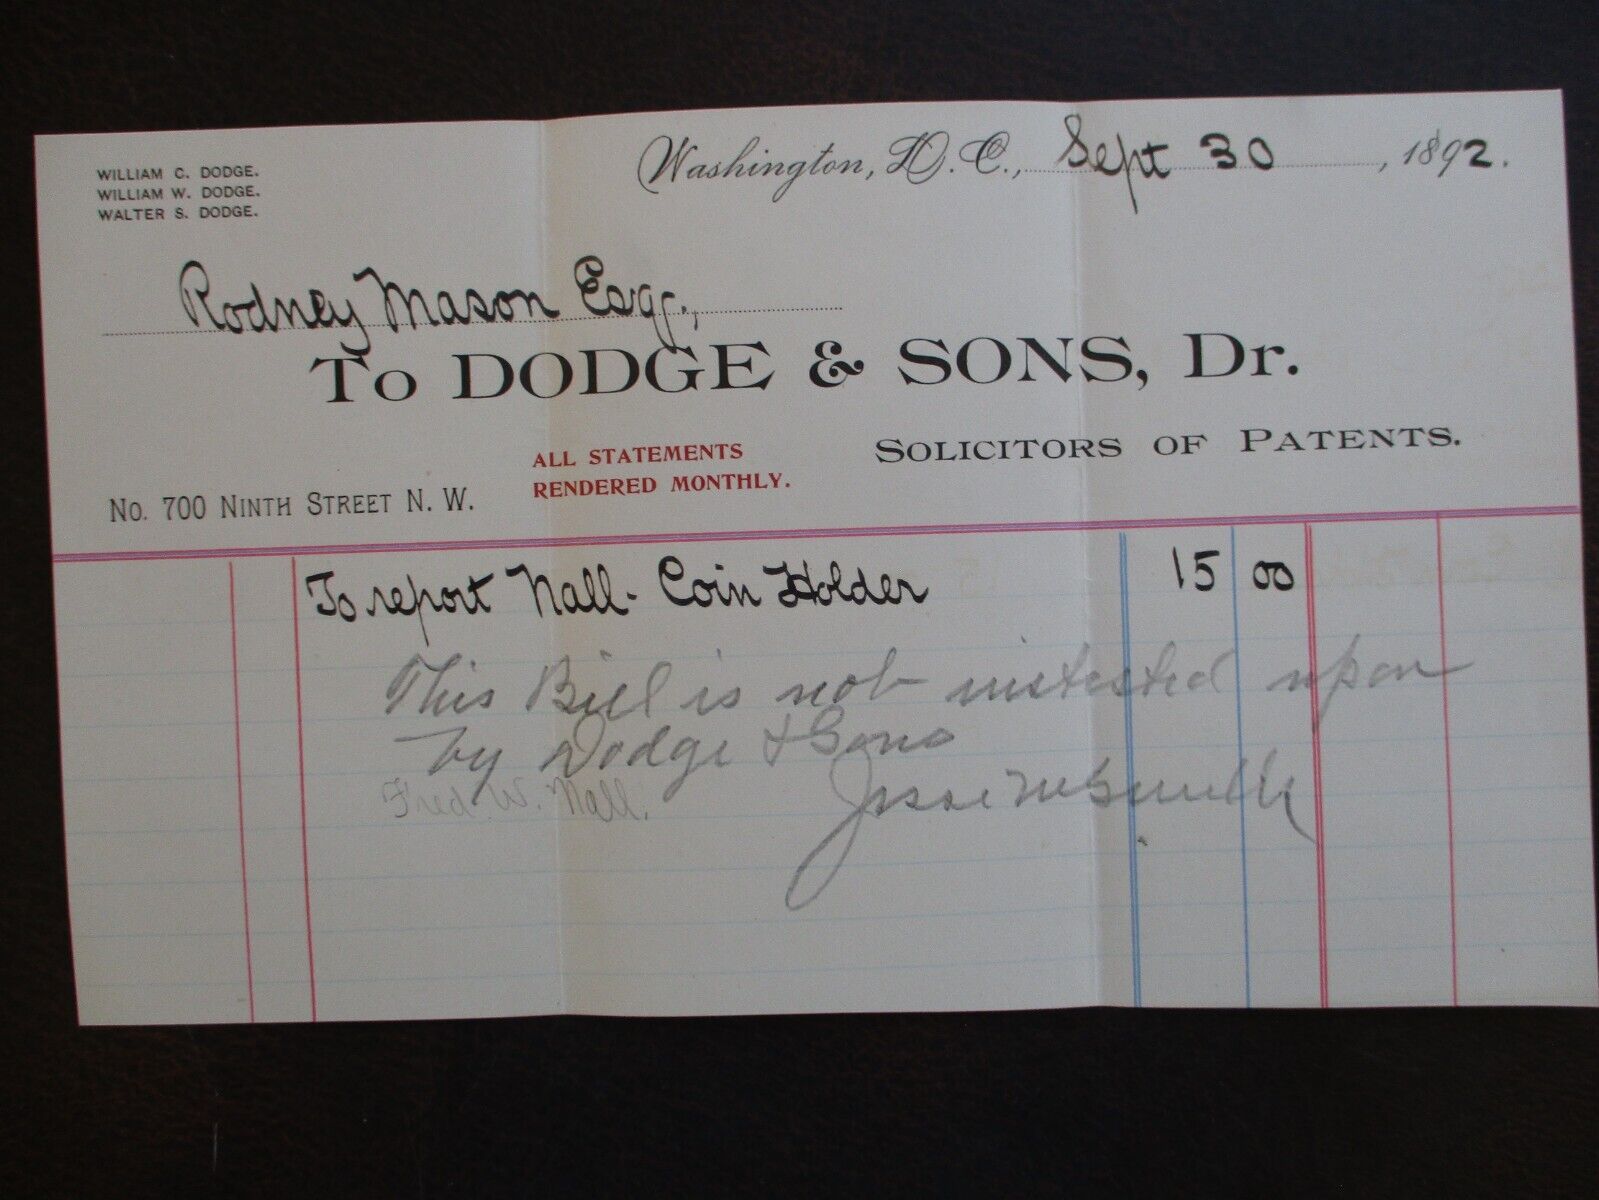 WILLIAM C. DODGE.
WILLIAM W. DODGE.
WALTER S. DODGE.
Washington, D. C., Sept 30, 1892.
Rodney Mason Esqr.,
To DODGE & SONS, Dr.
ALL STATEMENTS
RENDERED MONTHLY.
SOLICITORS OF PATENTS.
No. 700 NINTH STREET N. W.
To report Nall - Coin Holder 15 00
This Bill is not insisted upon
by Dodge & Sons
Fred. W. Nall.